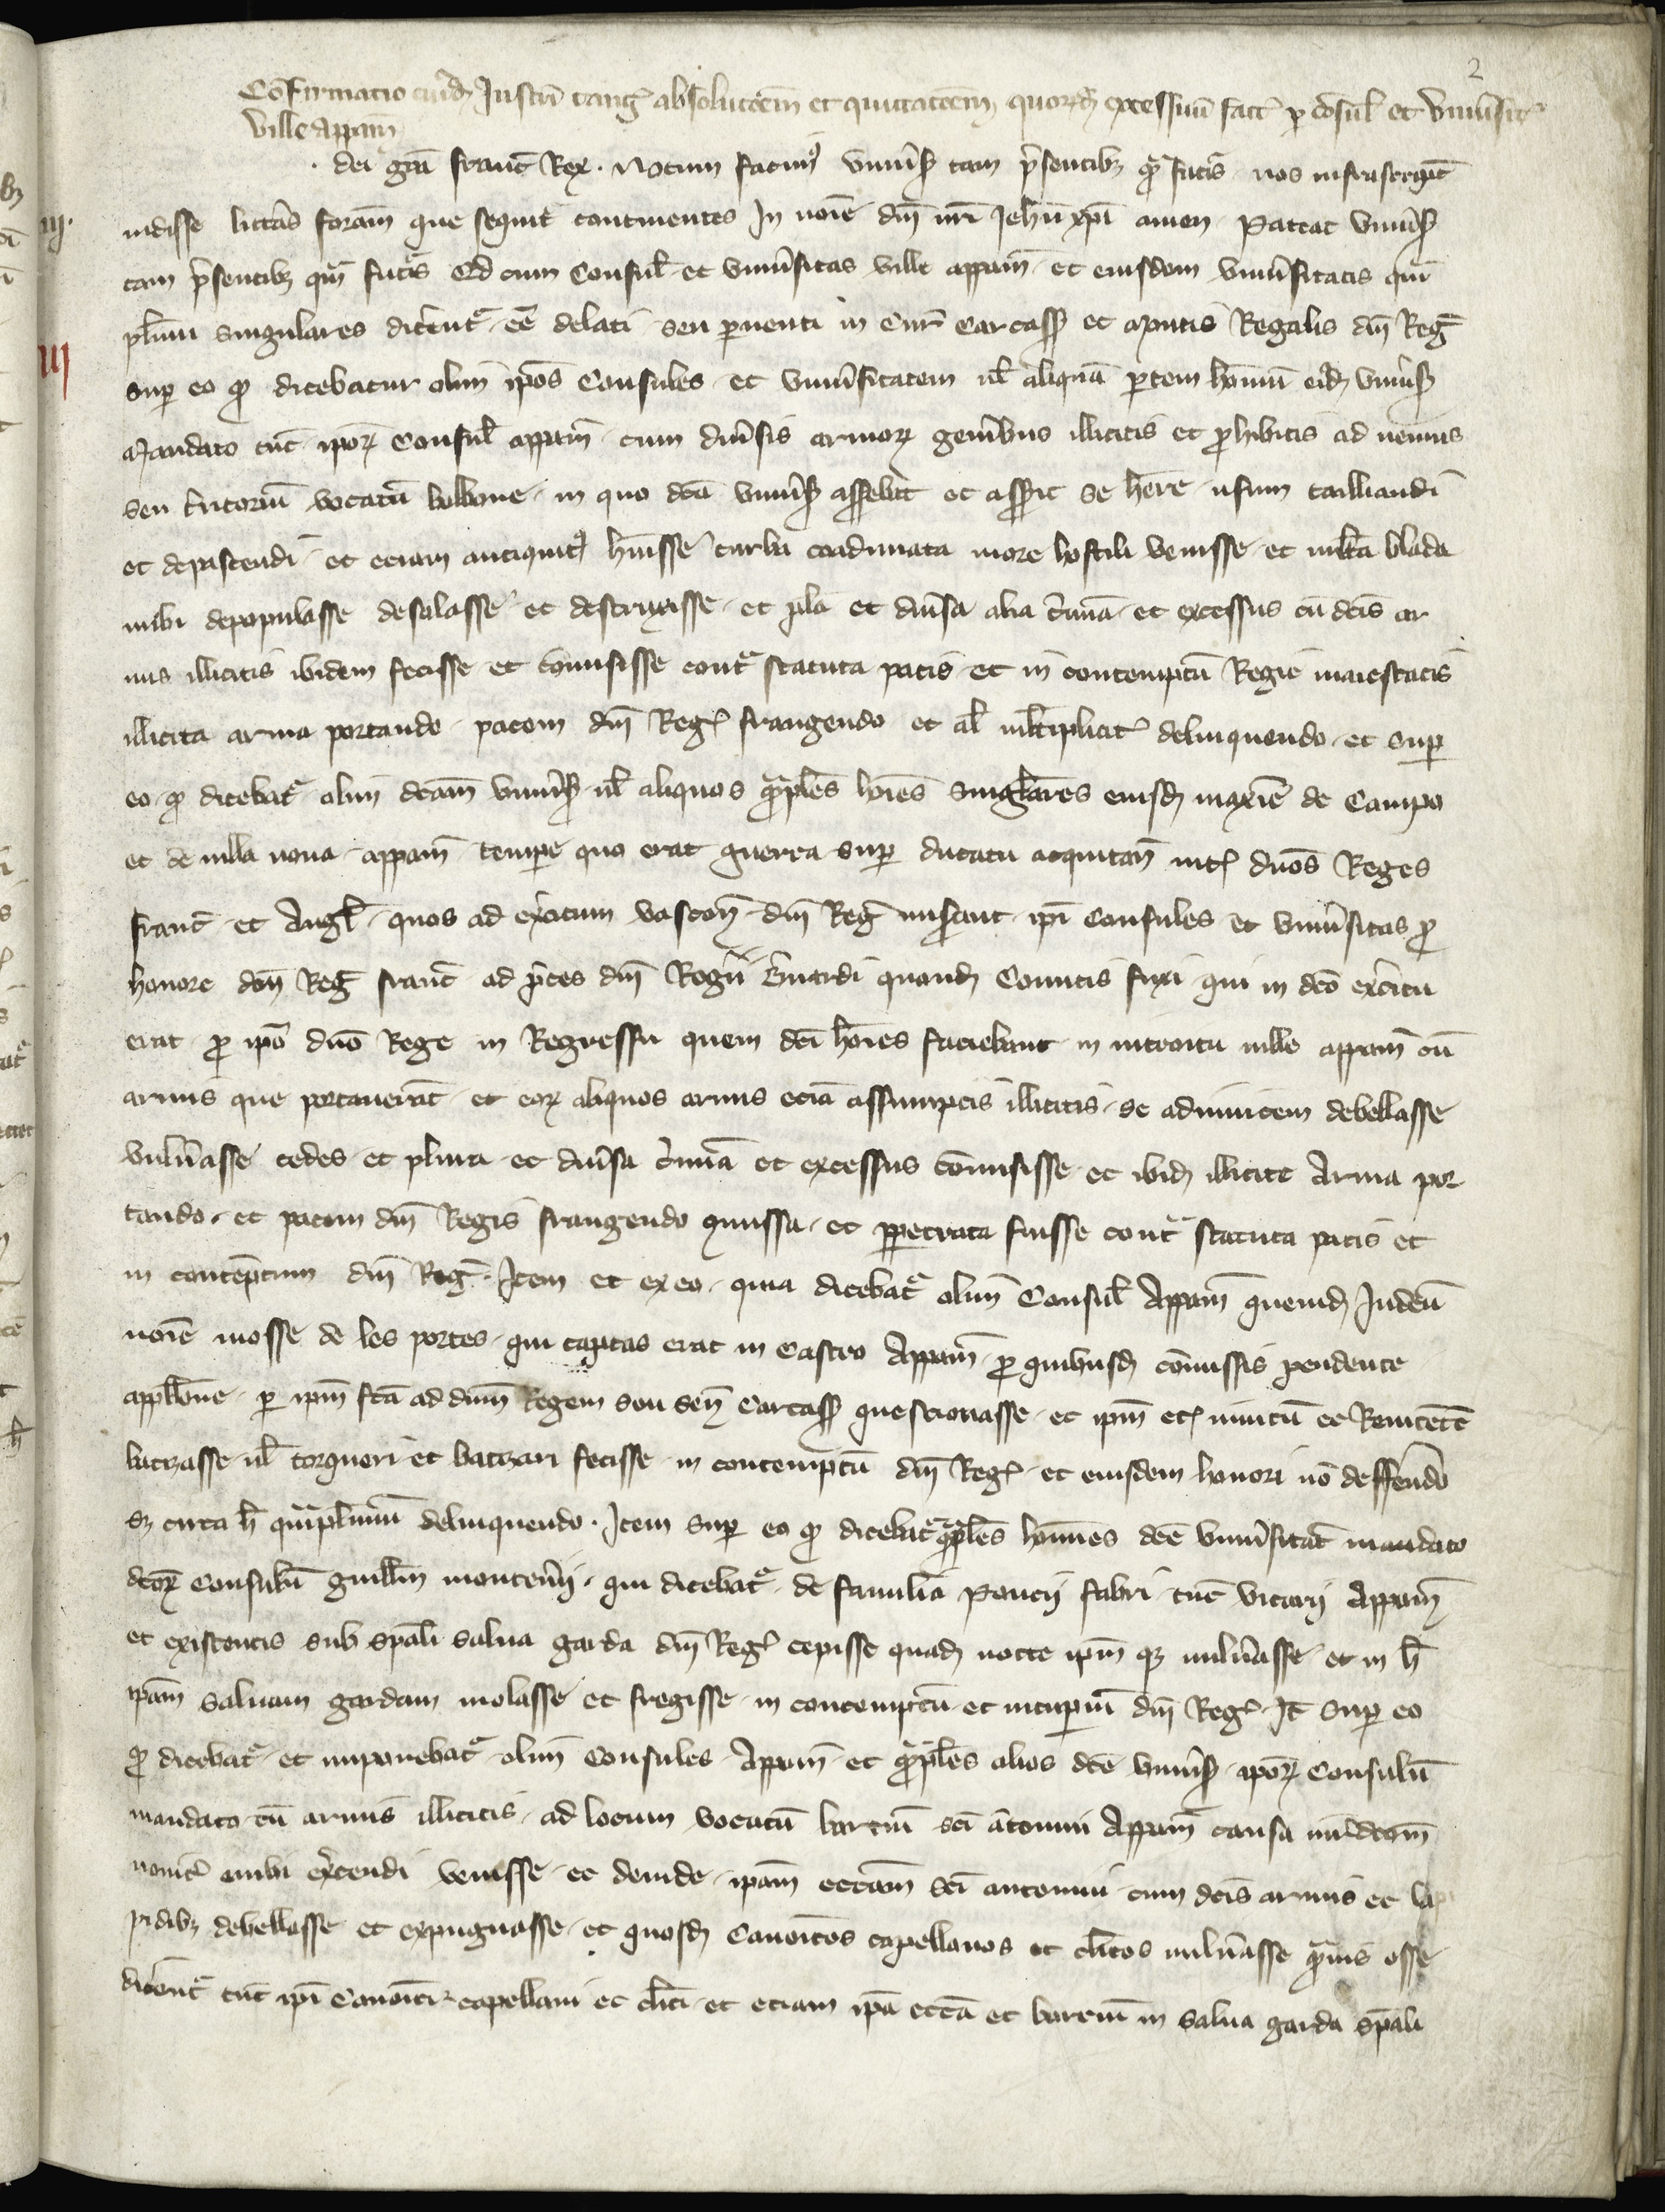 2
Cōfirmatio cuiusd Instri tang absolucoēm et quittacoēm quorūd excessuū fact p cōsul et vniūsit
ville Appam
dei grā franc Rex. Notum facim vniūs tam p̄sentib q̄ futis nos infrascript
iij.
vidisse litt̄as formam que sequit continentes In noīe dm̄ nrī Jehū xp̄i amen Pateat vniūs
tam p̄sentib q̄m futis Qd cum Consul et vniūsitas ville appam̄ et eiusdem vniūsitatis qm̄
III
plīmi singulares dic̄ent eē delati seu p̄uenti in Cur Carcass et montis Regalis dm̄ Reg
sup eo q dicebatur olim ip̄os Consules et vniūsitatem ul aliquā p̄tem hominū eid vniūs
Mandato tūc ipor Consul appam̄ cum diūsis armor gen̄ibus illicitis et p̄hibitis ad nemus
seu t̄ritoriū vocatū bolbone in quo dc̄a vniūs asseb̄at et asserit se h̄ere usum tailliandi
et depascendi et eciam antiquit h̄uisse turba coadunata more hostili venisse et m̄lta blada
inibi depopulasse desolasse et destruxisse et pla et diūsa alia c̄mīa et excessus cū dc̄is ar
mis illicitis ibidem fecisse et cōmisisse cont statuta pacis et in contemptū Regie maiestatis
illicita arma portando pacem dm̄ Reg frangendo et al m̄ltiplicit delinquendo et sup
eo q dicebat olim dc̄am vniūs ul aliquos q̄mples hoīes singlares eiusd maxīe de Campo
et de villa noua appam̄ tempe quo erat guerra sup ducatu acquitan̄ int duos Reges
franc et Angl quos ad ex̄citum vascon̄ dm̄ Reg mis̄ant ip̄i Consules et vniūsitas p
honore dm̄ Reg franc ad p̄ces dm̄ Rogīi B̄nardi quond Comitis fuxi qui in dc̄o ex̄citu
erat p ip̄o dno Rege in Regressu quem dc̄i hoīes faciebant in introitu ville appam̄ cū
armis que portauerāt et eor aliquos armis eciā assumptis illicitis se adinuicem debellasse
vuln̄asse cedes et plura et diūsa c̄mīa et excessus cōmisisse et ibid illicite Arma por
tando et pacem dm̄ Regis frangendo qmissa et ppetrata fuisse cont statuta pacis et
in conteptum dm̄ Reg Item et ex eo quia dicebat olim Consul Appam̄ quemd Iudeū
noīe mosse de les portes qui captus erat in Castro Appam̄ p quibusd cōmissis pendente
appllōne p ipm̄ fc̄a ad dnm̄ Regem seu sen̄ Carcass questionasse et ipm̄ et inuitū et Renitētē
batzasse ul torqueri et batzari fecisse in contemptū dm̄ Reg et eiusdem honori nō defferendo
s circa h̄ q̄mplīmū delinquendo. Item sup eo q dicebat q̄mples homines dc̄e vniūsitat mandato
dc̄or Consulū guillm̄ montenīj qui dicebat de familia Poncij fabri tūc vicarij Appam̄
et existentis sub sp̄ali salua garda dm̄ Reg cepisse quad nocte ipm̄ q vuln̄asse et in h̄
ip̄am saluam gardam violasse et fregisse in contemptū et vitupiū dm̄ Reg It sup eo
q dicebat et imponebat olim Consules Appam̄ et q̄mples alios dc̄e vniūs ipor Consulū
mandato cū armis illicitis ad locum vocatū barriū sc̄i antonini Appam̄ causa iur̄dicom̄
nouit inibi ex̄cendi venisse et deinde ip̄am eccām sc̄i antonini cum dc̄is armis et lap
pidib debellasse et expugnasse et quosd Canoicos capellanos et cl̄icos vuln̄asse q̄uis esse
dic̄ent tūc ip̄i Canoici capellani et cl̄ici et eciam ip̄a eccā et barriū in salua garda sp̄ali